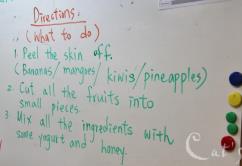 Directions:
(What to do)
1. Peel the skin off.
(Bananas/mangoes/kiwis/pineapples)
2. Cut all the fruits into
small pieces.
3. Mix all the ingredients with
some yogurt and honey.